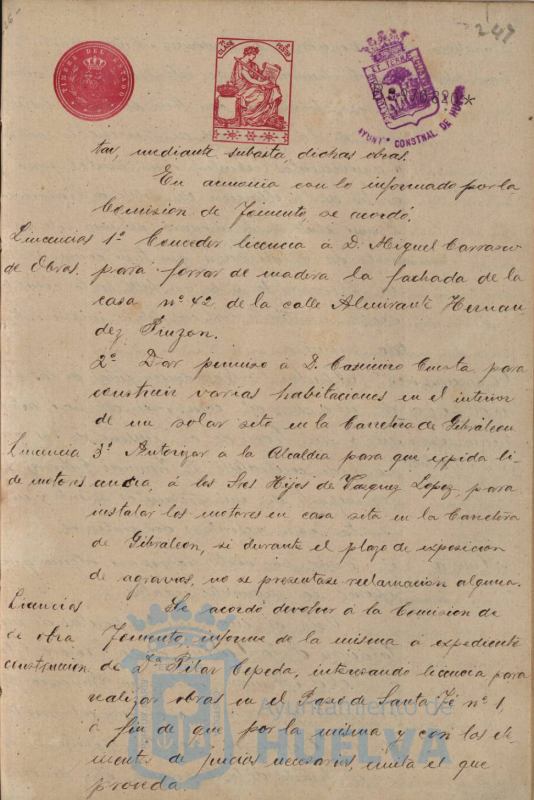 247
TIMBRE DEL ESTADO
AYUNT° CONSTNAL DE HUELVA
tar, mediante subasta, dichas obras.
En armonia con lo informado por la
Comision de Fomento, se acordó.
Lincencias 1º Conceder licencia á D. Miguel Carrasco
de Obras. para forrar de madera la fachada de la
casa nº 42 de la calle Almirante Hernan
dez Pinzon.
2º Dar permiso á D. Casimiro Cuesta para
construir varias habitaciones en el interior
de un solar sito en la Carretera de Gibraleon
Lincencia 3º Autorizar á la Alcaldia para que expida li-
de motores encia, á los Sres Hijos de Vazquez Lopez, para
instalar los motores en casa sita en la Carretera
de Gibraleon, si durante el plazo de exposicion
de agravios, no se presentase reclamacion alguna.
Licencias Se acordó devolver á la Comision de
de obra Fomento, informe de la misma á expediente
construcion de Dª Pilar Cepeda, interesando licencia para
realizar obras en el Paseo de Santa Fé nº 1
á fin de que por la misma y con los ele-
mentos de juicios necesarios, emita el que
proceda.
Ayuntamiento de
HUELVA